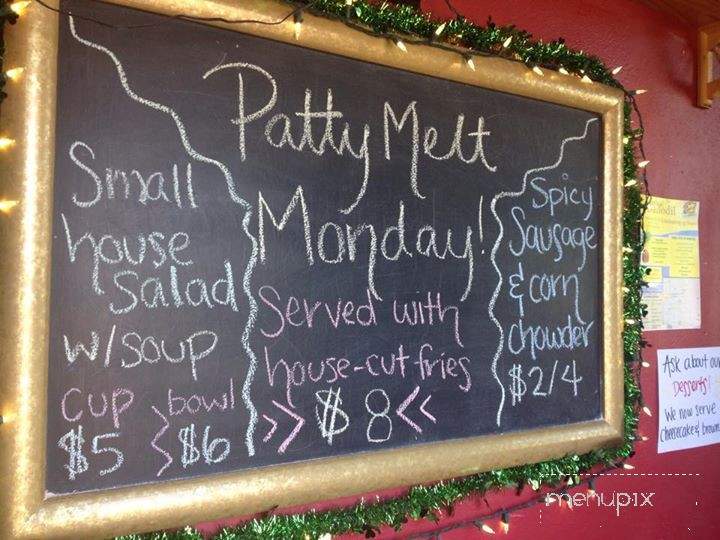 Patty Melt
Monday!
Served with
house-cut fries
>> $8 <<
Small
house
Salad
w/soup
cup bowl
$5 $6
Spicy
Sausage
& corn
chowder
$2/4
Ask about our
Desserts!
We now serve
cheesecake &
menupix